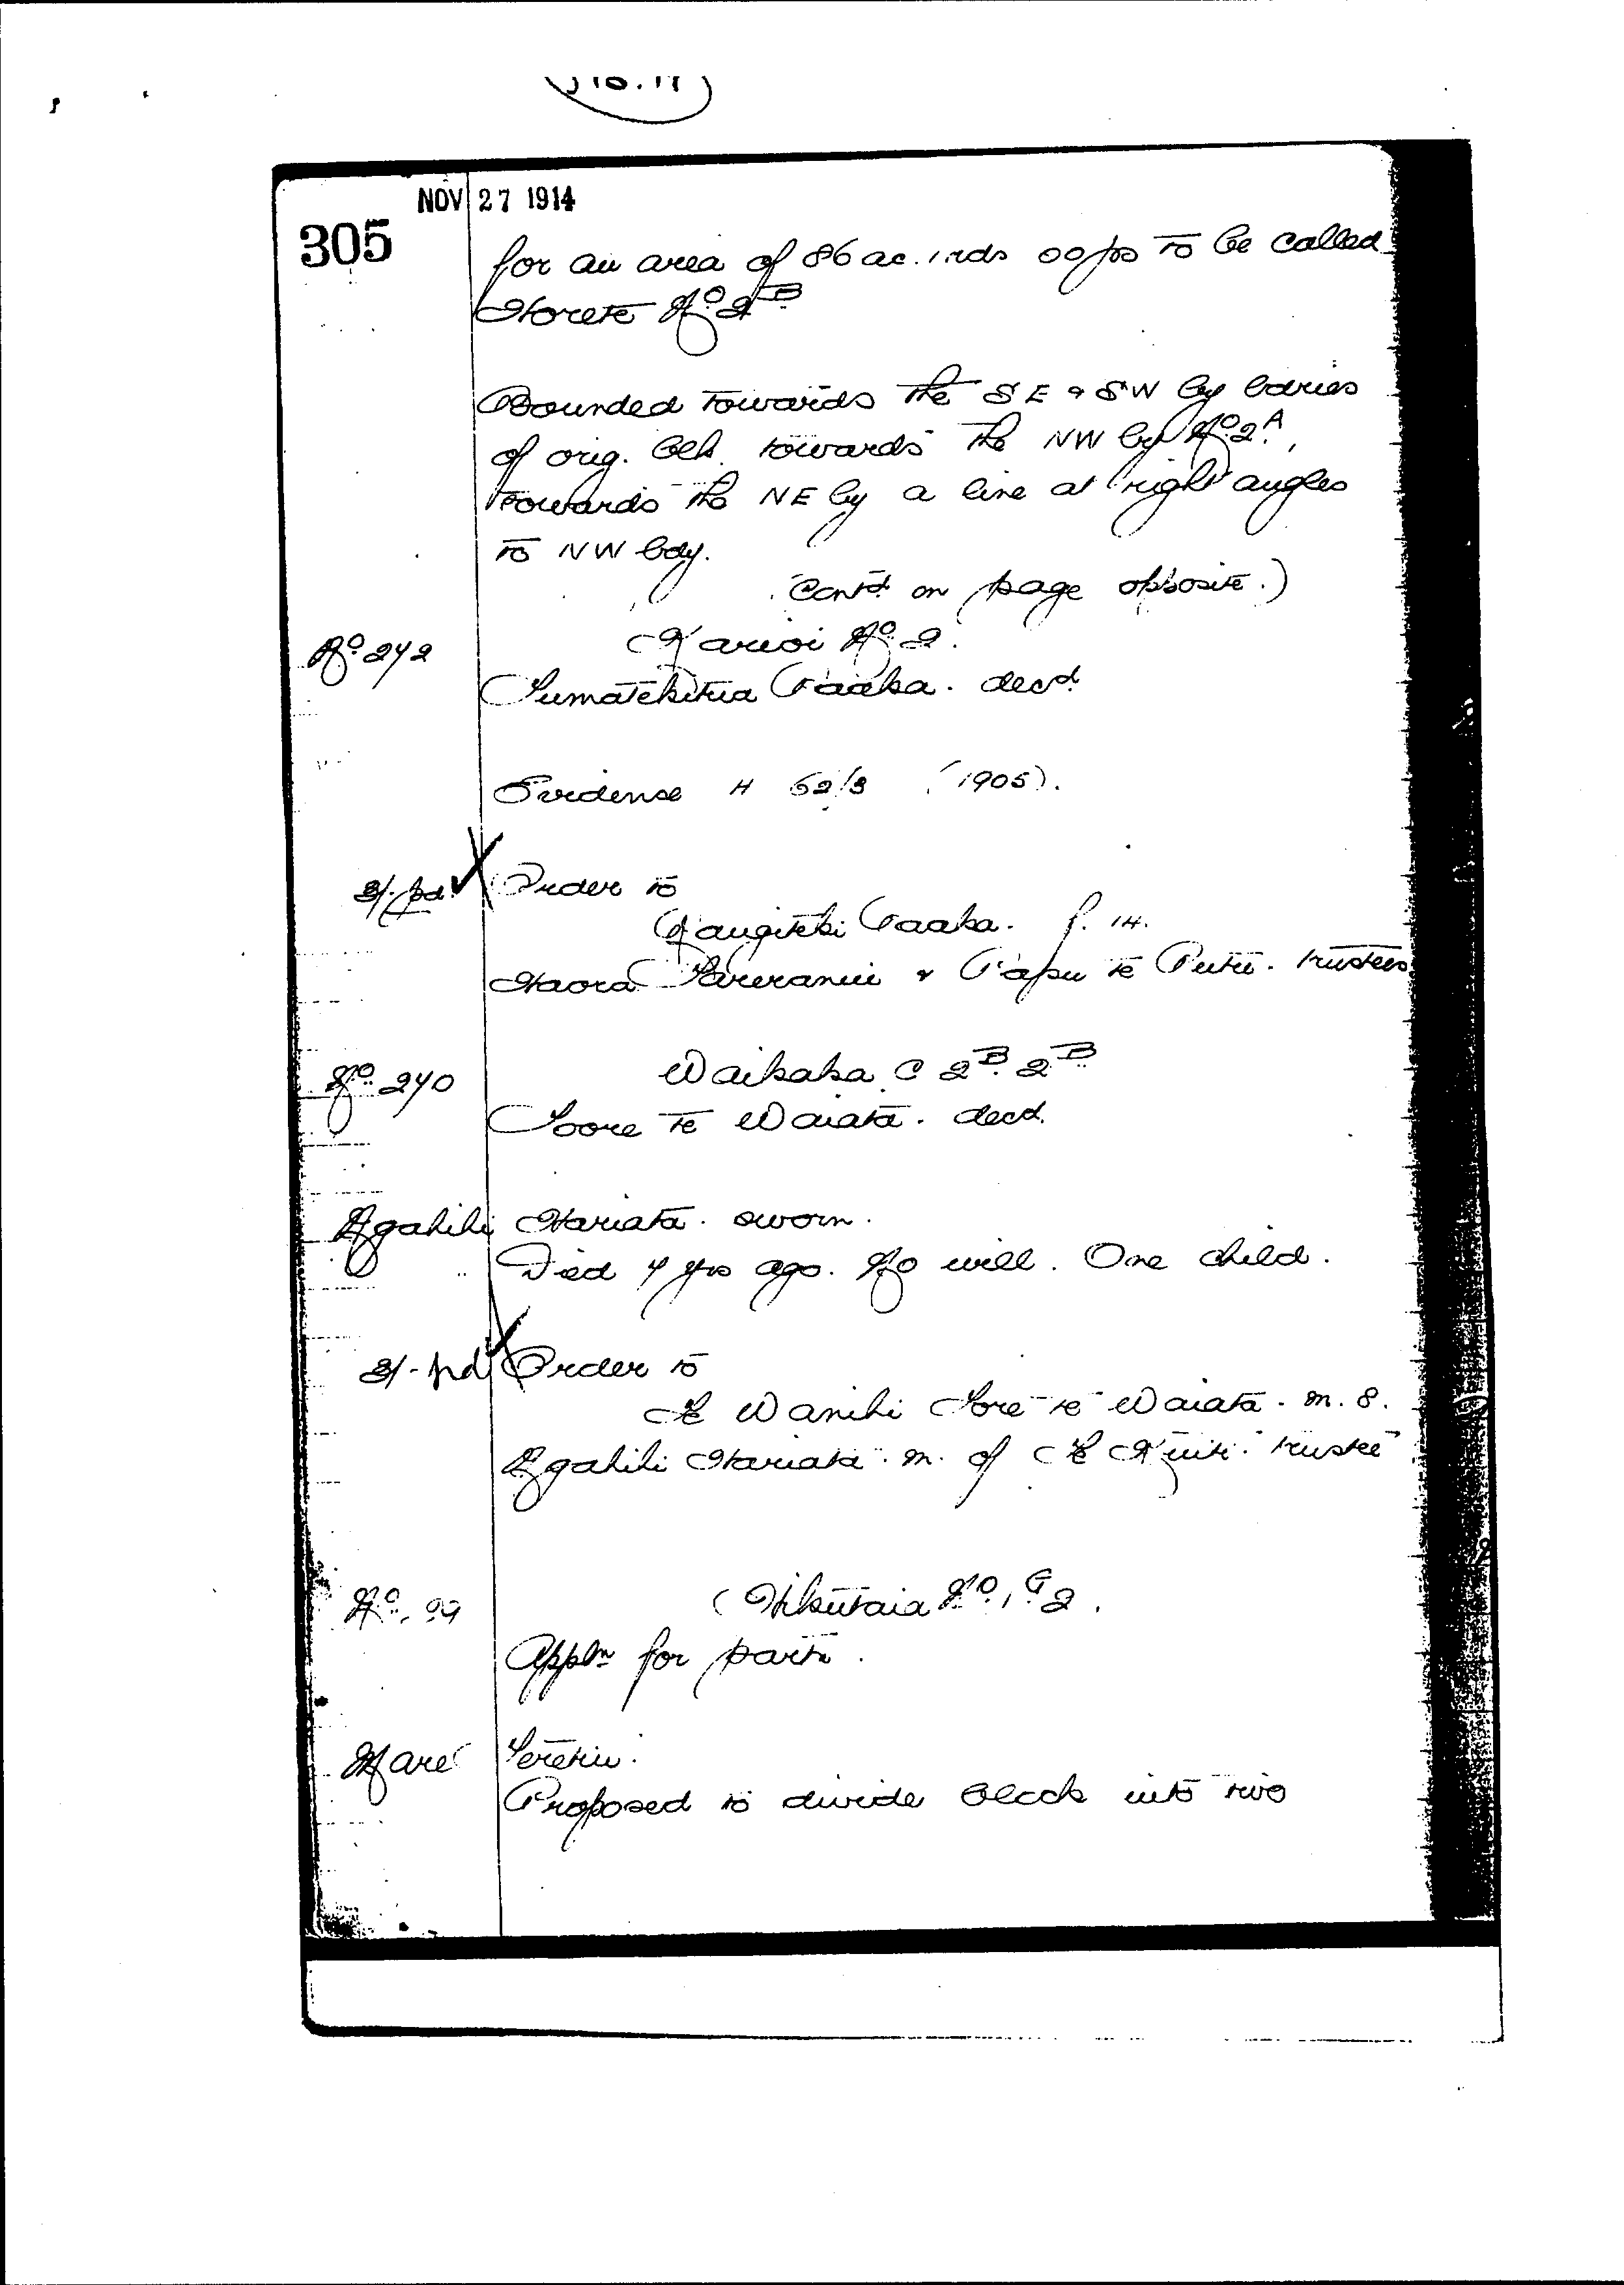 NOV 27 1914
305
for an area of 86 ac. 1 rds 00 ps to be called
Horete No 2B
Bounded towards the SE & SW by bdries
of orig. blk. towards the NW by No 2A,
towards the NE by a line at right angles
to NW bdy.
(Contd on page opposite.)
No 272 Karioi No 2.
Tumatekitua Paaka. decd
Evidence H 52/3 (1905).
3/- pd Order to
Rangiteki Paaka. f. 14.
Haora Tareranui & Papu te Putu. trustees
No 270 Waikaka C 2B 2B
Toore te Waiata. decd.
Ngahihi Hariata. sworn.
Died 7 yrs ago. No will. One child.
3/- pd Order to
Te Wanihi Tore te Waiata. m. 8.
Ngahihi Hariata. m. of Te Kuiti. trustee
No. 99 Hikutaia No. 1 G 2.
Appln for partn.
Mare Teretiu.
Proposed to divide block into two